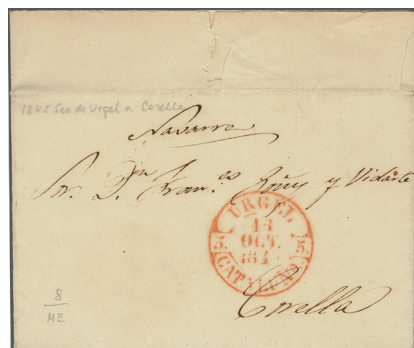 1845 Seo de Urgel a Corella
Navarra
Sr. Dn Franco y Vidarte
URGEL
13
OCT.
184
5 5
CATALUÑA
Corella
8
ME